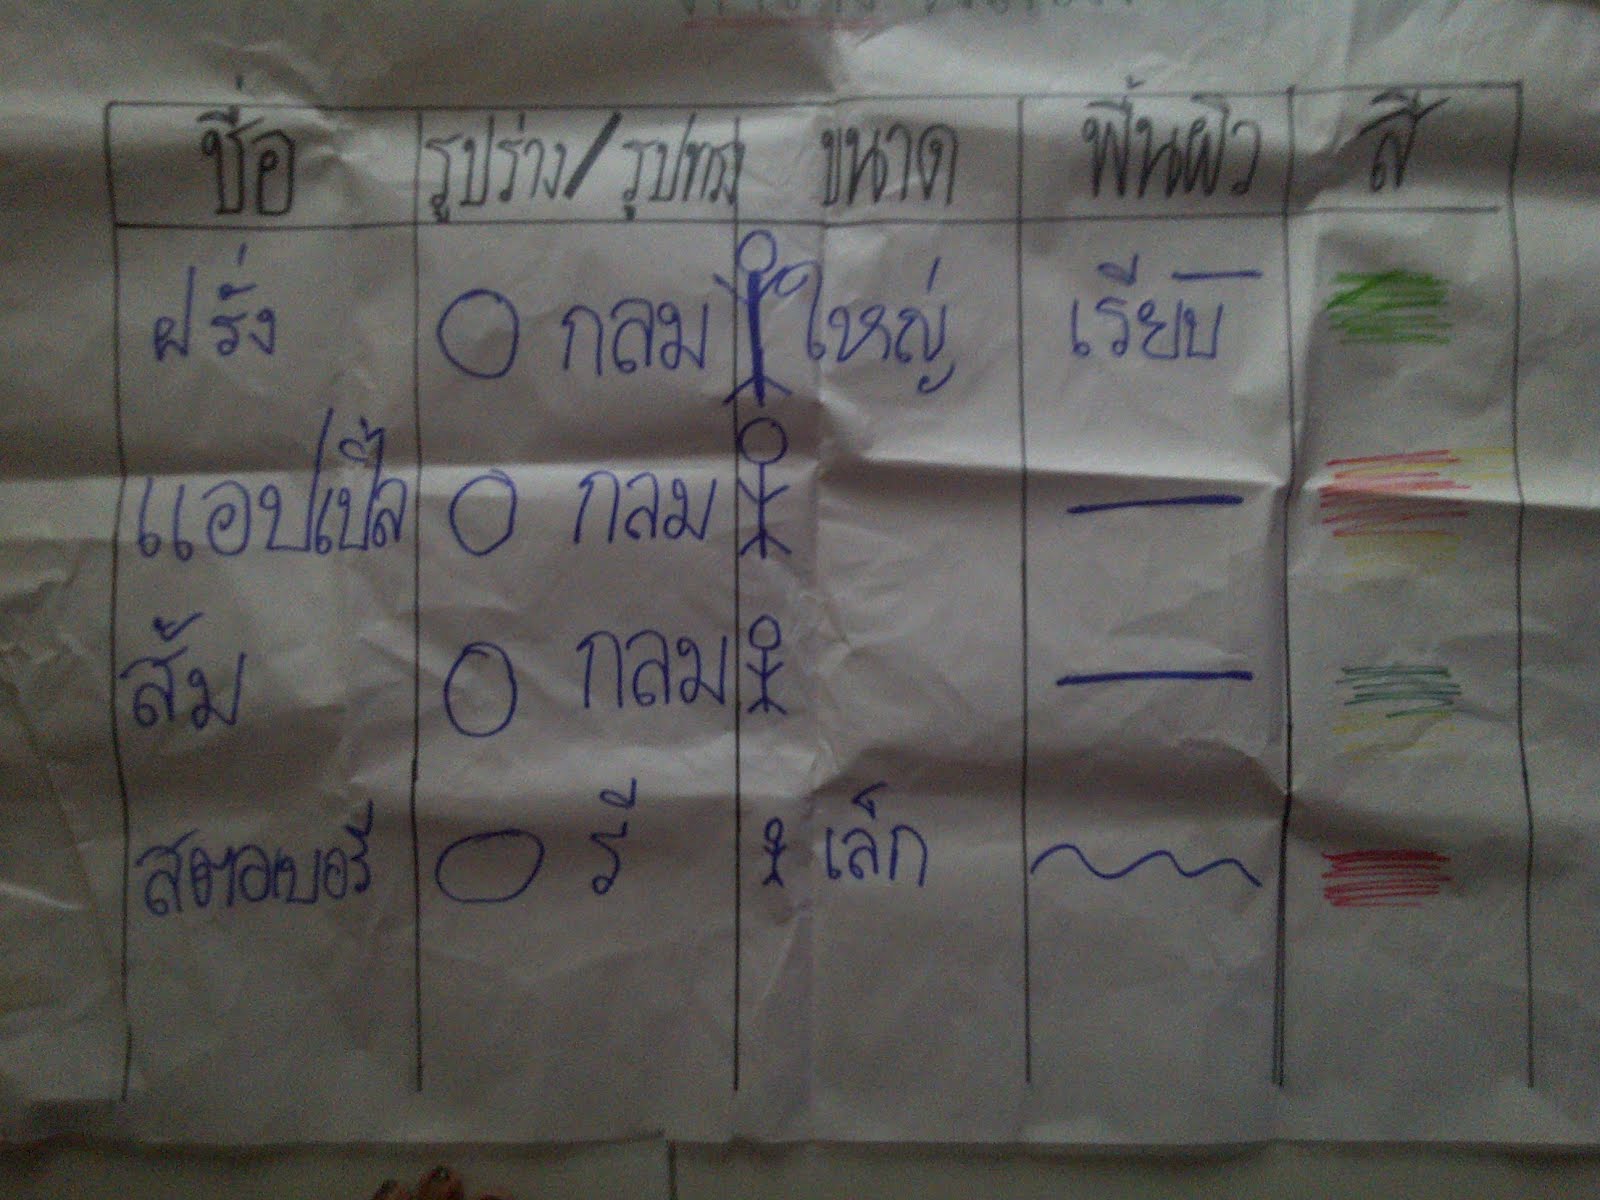 ชื่อ รูปร่าง/รูปทรง ขนาด พื้นผิว สี
ฝรั่ง กลม ใหญ่ เรียบ
แอปเปิ้ล กลม
ส้ม กลม
สตอเบอรี่ รี เล็ก